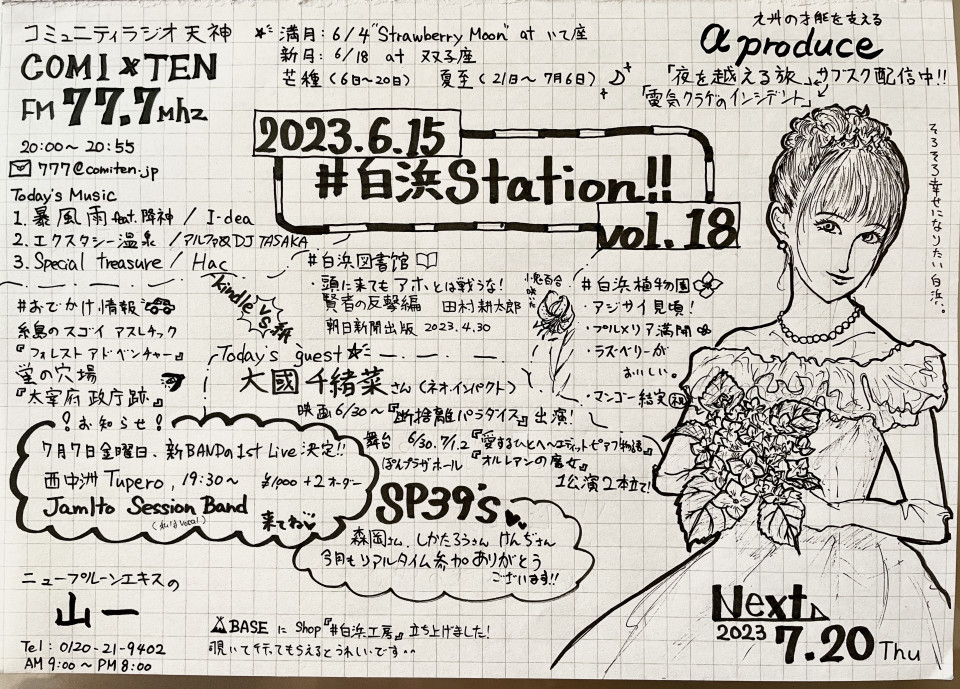 コミュニティラジオ天神
COMI×TEN
FM 77.7Mhz
20:00〜20:55
777@comiten.jp
Today's Music
1. 暴風雨 feat. 降神 / I-dea
2. エクスタシー温泉 / アルファ&DJ TASAKA
3. Special treasure / Hac
満月：6/4 "Strawberry Moon" at いて座
新月：6/18 at 双子座
芒種（6日〜20日） 夏至（21日〜7月6日）
九州の才能を支える
αproduce
「夜を越える旅」サブスク配信中!!
「電気クラゲのインシデント」
2023.6.15
#白浜Station!!
vol.18
そろそろ幸せになりたい白浜。。
#おでかけ情報
糸島のスゴイアスレチック
『フォレストアドベンチャー』
蛍の穴場
『大宰府政庁跡』
#白浜図書館
・頭に来てもアホとは戦うな!
賢者の反撃編 田村耕太郎
朝日新聞出版 2023.4.30
kindle
VS
紙
小鬼百合
咲いた
#白浜植物園
・アジサイ見頃!
・プルメリア満開
・ラズベリーが
おいしい。
・マンゴー結実 祝
Today's guest
大國千緒菜さん（ネオ.インパクト）
映画6/30〜『断捨離パラダイス』出演!
舞台 6/30.7/1.2『愛するひとへ〜エディットピアフ物語』
ぽんプラザホール『オルレアンの魔女』
1公演2本立て!
!お知らせ!
7月7日金曜日、新BANDの1st Live 決定!!
西中洲 Tupero, 19:30〜 ¥1,000+2オーダー
JamIto Session Band
（私はvocal）
来てね♡
SP39's
森岡さん、しかたろうさん けんぢさん
今月もリアルタイム参加ありがとう
ございます!!
ニュープルーンエキスの
山一
Tel：0120-21-9402
AM 9:00〜PM 8:00
BASEにShop『#白浜工房』立ち上げました!
覗いて行ってもらえるとうれしいです
Next
2023 7.20 Thu